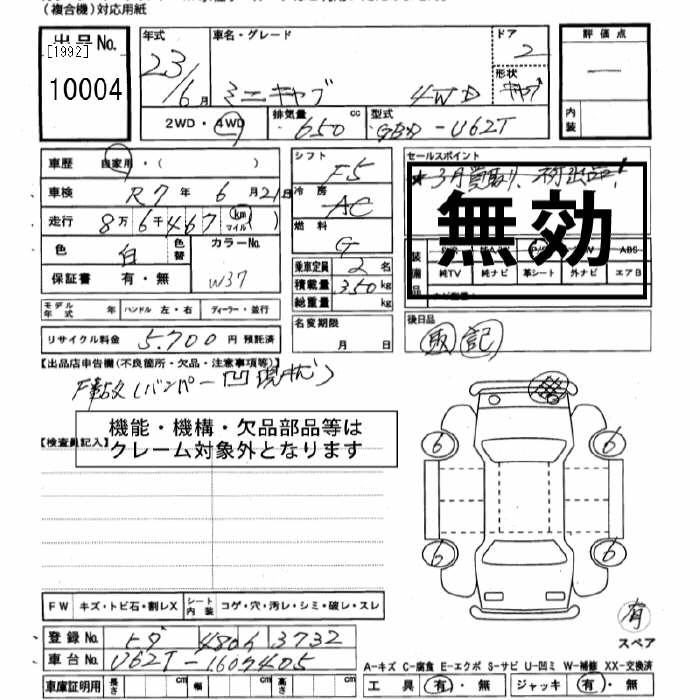 (複合機)対応用紙
出品No. [1992] 10004
年式 23/6月 車名・グレード ミニキャブ 4WD ドア 2 形状 キャブ
評価点 — 内装
2WD・4WD 排気量 650 cc 型式 GBD-U62T
車歴 自家用・( ) シフト F5 セールスポイント
車検 R7年6月21日 冷房 AC ★3月買取り、
走行 8万6千467 km マイル 燃料 G 無効
色 白 色替 カラーNo. W37 乗車定員 2名
保証書 有・無 積載量 350kg 装備品 純TV 純ナビ 革シート 外ナビ エアB ABS
総重量 kg
モデル年式 年 ハンドル 左・右 ディーラー・並行 名変期限 月 日 後日品 取 記
リサイクル料金 5.700円 預託済
【出品店申告欄(不良箇所・欠品・注意事項等)】
バンパー凹
機能・機構・欠品部品等は
クレーム対象外となります
【検査員記入】
6 6
6 6
FW キズ・トビ石・割レX シート内装 コゲ・穴・汚レ・シミ・破レ・スレ
有
スペア
登録No. 480 ら 3732
車台No. U62T-1607405
A-キズ C-腐食 E-エクボ S-サビ U-凹ミ W-補修 XX-交換済
車庫証明用 長さ cm 幅 cm 高さ cm 工具 有・無 ジャッキ 有・無